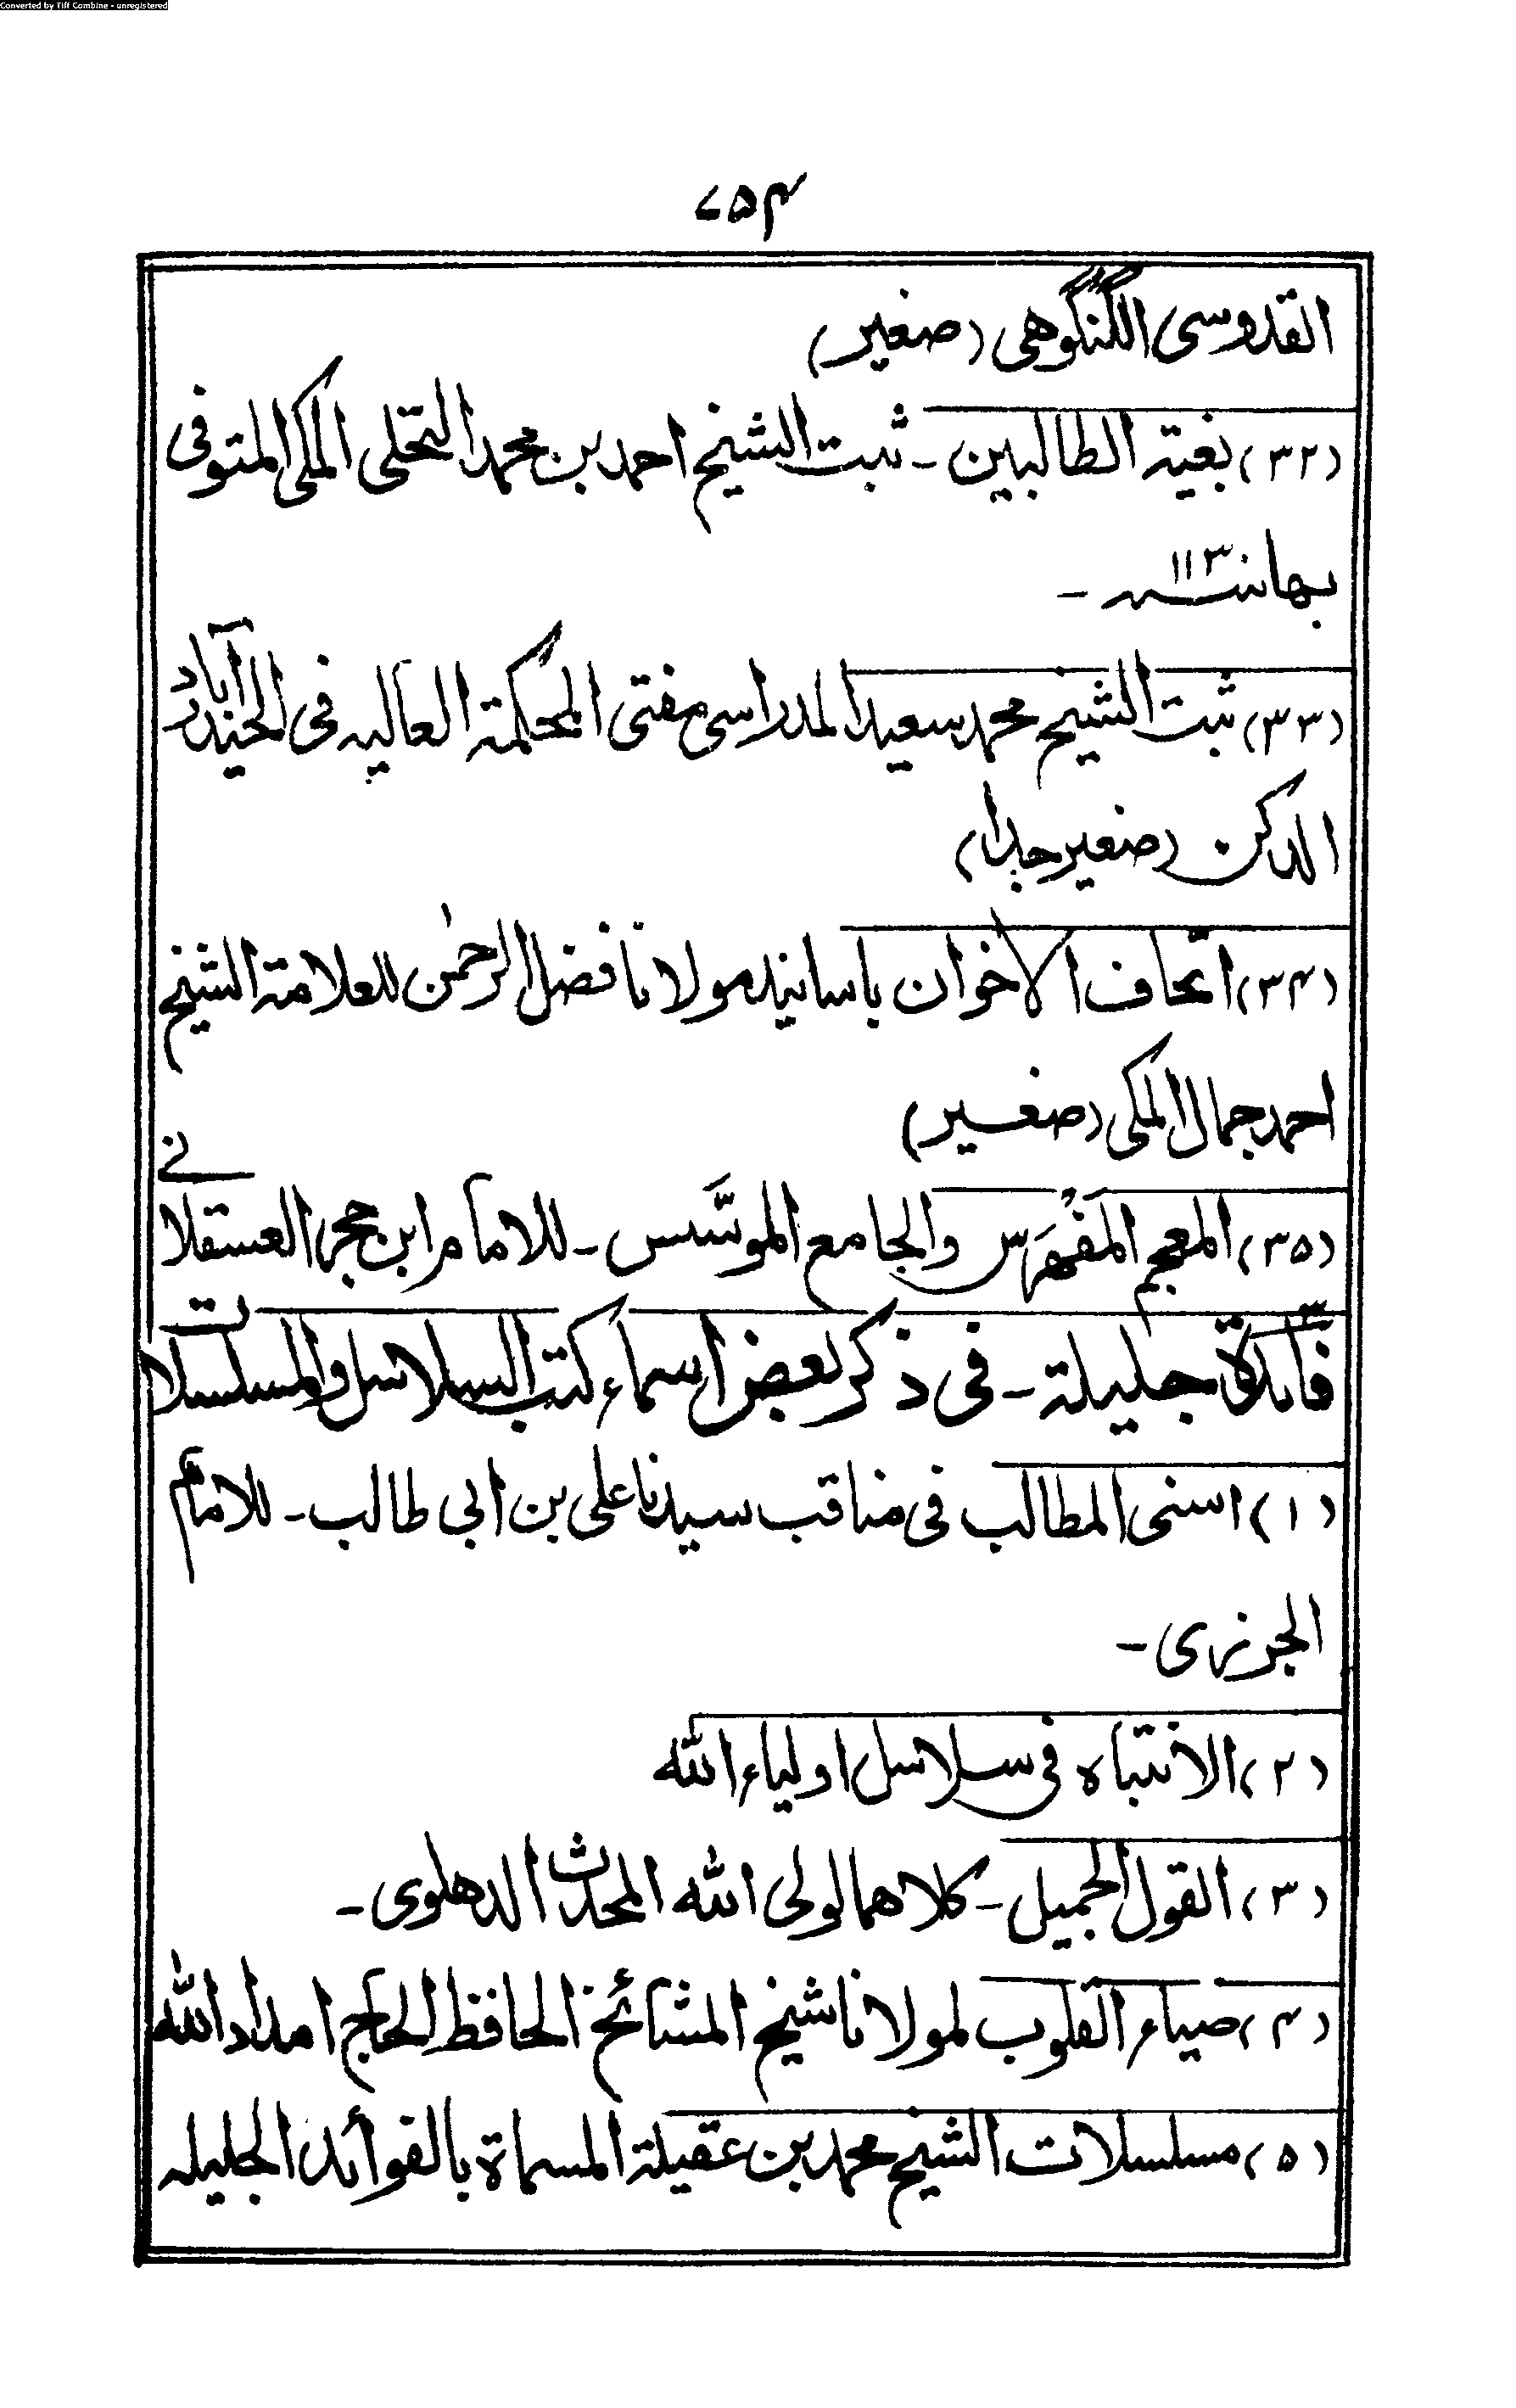 Converted by Tiff Combine - unregistered
۷۵۴
القدوسی الگنگوھی (صغیر)
(۳۲) بغیة الطالبین ـ ثبت الشیخ احمد بن محمد النحلی المکی المتوفی
بھا سنہ ۱۱۳ ـ
(۳۳) ثبت الشیخ محمد سعید المدراسی مفتی المحکمة العالیه فی الحیدرآباد
الدکن (صغیر جدا)
(۳۴) اتحاف الاخوان باسانید مولانا فضل الرحمٰن للعلامة الشیخ
احمد جمال المکی (صغیر)
(۳۵) المعجم المَفْهَرَس والجامع الموسَّس ـ للامام ابن حجر العسقلانے
فائدة جلیلة ـ فی ذکر بعض اسماء کتب السلاسل والمسلسلات
(۱) اسنی المطالب فی مناقب سیدنا علی بن ابی طالب ـ للامام
الجزری ـ
(۲) الانتباہ فی سلاسل اولیاء الله
(۳) القول الجمیل ـ کلاهما لولی الله المحدث الدهلوی ـ
(۴) ضیاء القلوب لمولانا شیخ المشائخ الحافظ الحاج امداد الله
(۵) مسلسلات الشیخ محمد بن عقیلة المسماة بالفوائد الجلیله